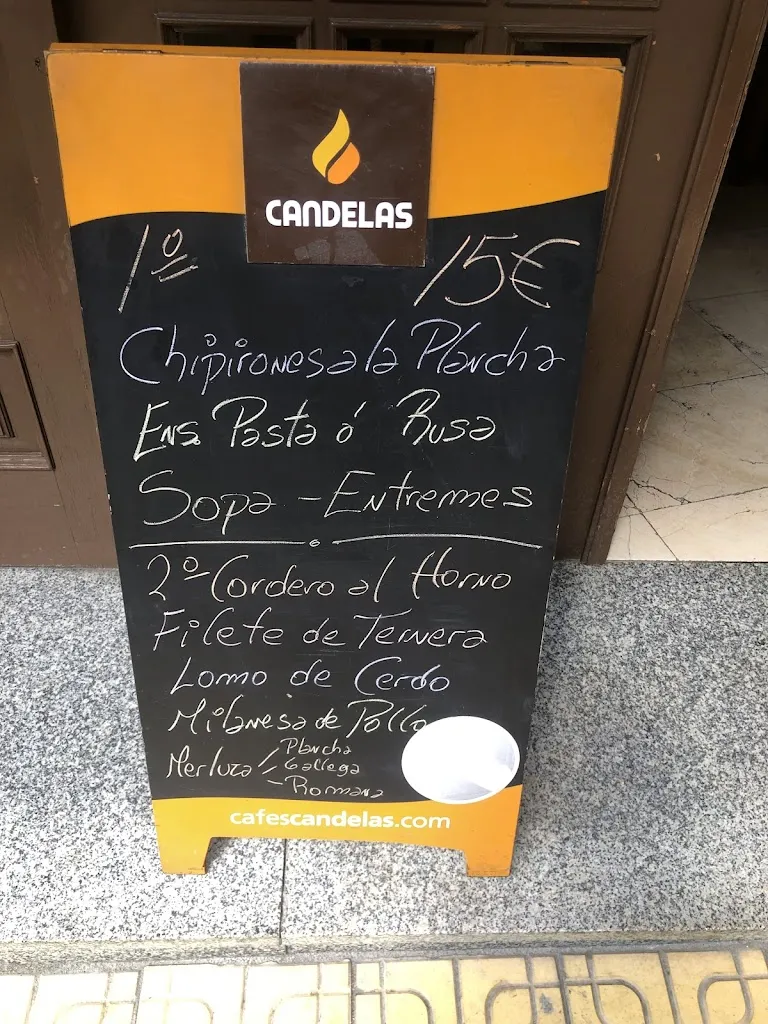 CANDELAS
1º 15€
Chipirones a la Plancha
Ens. Pasta ó Rusa
Sopa - Entremes
2º Cordero al Horno
Filete de Ternera
Lomo de Cerdo
Milanesa de Pollo
Merluza Plancha
Gallega
- Romana
cafescandelas.com